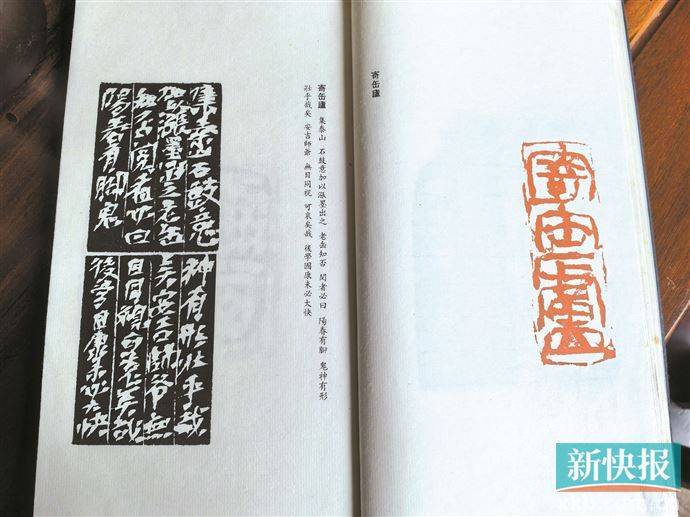 寄缶廬
寄缶廬
寄缶廬 集泰山 石鼓意加以漲墨出之 老缶知否 聞者必曰 陽春有腳 鬼神有形
壯乎哉矣 安吉師爺 無目同視 可哀矣哉 後學固康未必大快
集泰山石鼓意
加以漲墨出之老缶
知否聞者必曰
陽春有腳鬼
神有形壯乎哉
矣安吉師爺無
目同視可哀矣哉
後學固康未必大快
新快报